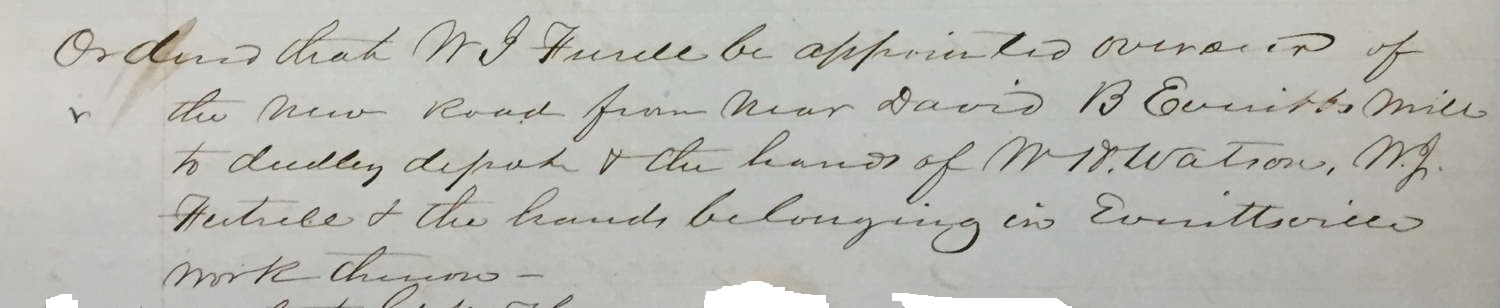 Ordered that W J Futrell be appointed overseer of
the new road from near David B Everitts Mill
to dudley depot & the hands of W H. Watson, W. J.
Futrell & the hands belonging in Everittsville
work thereon -